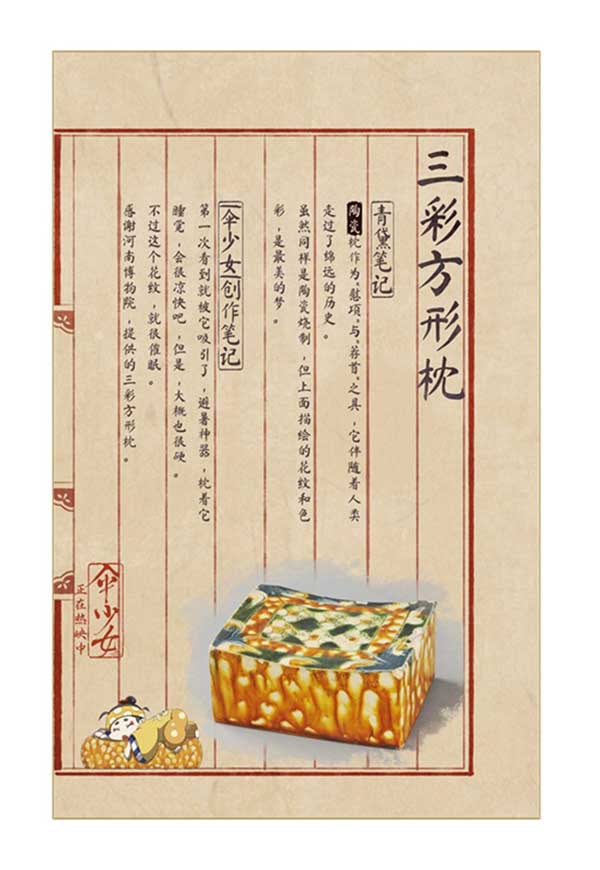 三彩方形枕
青黛笔记
陶瓷枕作为“慰项”与“荐首”之具，它伴随着人类
走过了绵远的历史。
虽然同样是陶瓷烧制，但上面描绘的花纹和色
彩，是最美的梦。
伞少女创作笔记
第一次看到就被它吸引了，避暑神器，枕着它
睡觉，会很凉快吧，但是，大概也很硬。
不过这个花纹，就很催眠。
感谢河南博物院，提供的三彩方形枕。
伞少女
正在热映中